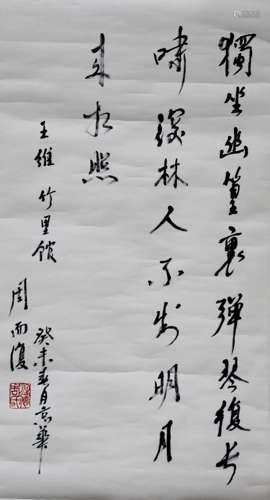 獨坐幽篁裏彈琴復長
嘯深林人不知明月
來相照
王維 竹里館
周而復
癸未春月京華